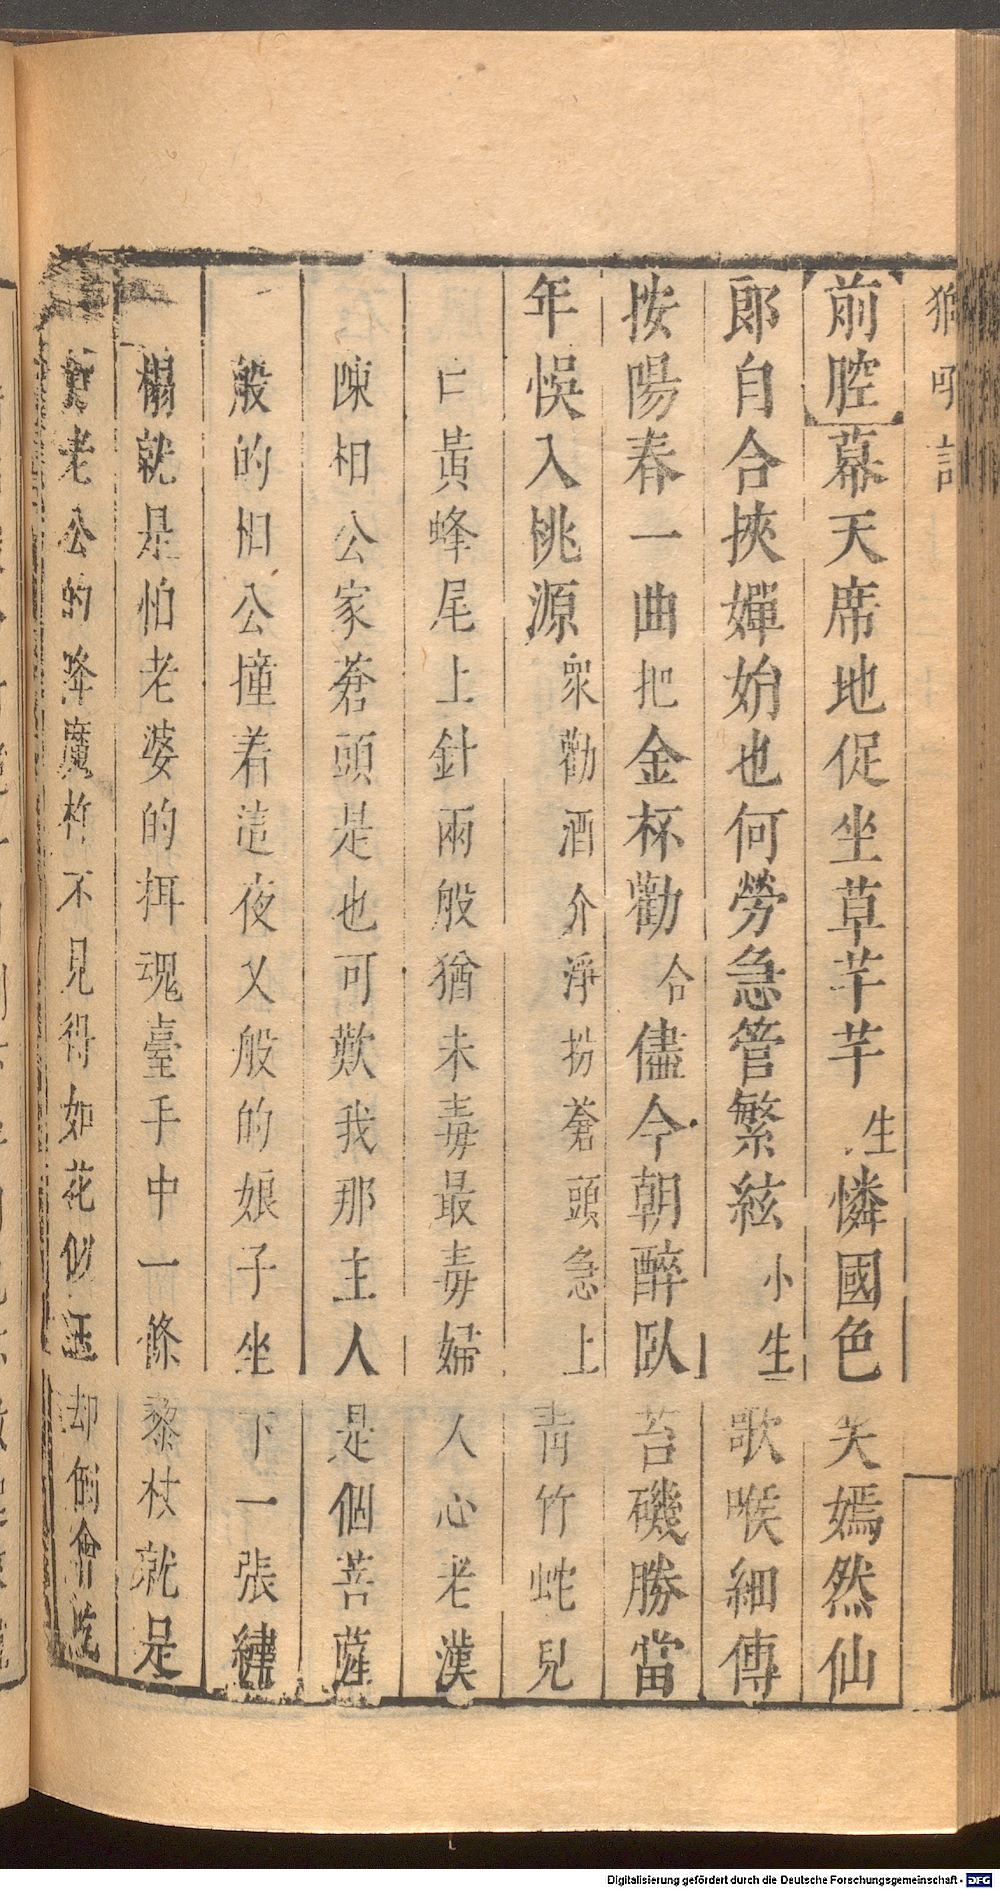 獅吼記
前腔幕天席地促坐草芊芊生憐國色天嫣然仙
郎自合挾嬋始也何勞急管繁絃小生歌喉細傳
按陽春一曲把金杯勸合儘今朝醉臥苔磯勝當
年悞入桃源衆勸酒介淨扮蒼頭急上青竹蛇兒
口黃蜂尾上針兩般猶未毒最毒婦人心老漢
陳相公家蒼頭是也可歎我那主人是個菩薩
一般的相公撞着這夜叉般的娘子坐下一張繡
榻就是怕老婆的挕魂臺手中一條黎杖就是
老公的降魔杵不見得如花似玉却倒會
Digitalisierung gefördert durch die Deutsche Forschungsgemeinschaft - DFG